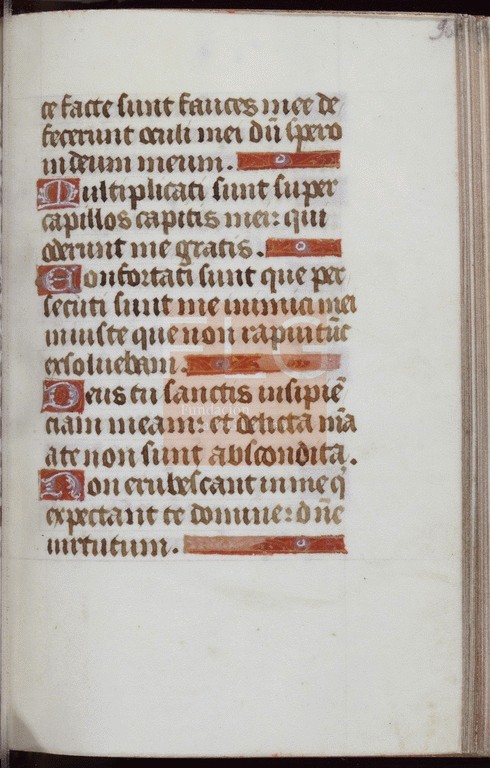 ce facte sunt fauces mee de
fecerunt oculi mei dū spero
in deum meum.
Multiplicati sunt super
capillos capitis mei: qui
oderunt me gratis.
Confortati sunt que per
secuti sunt me inimici mei
iniuste que non rapui tūc
exsoluebam.
Deus tu sanctis insipiē
ciam meam: et delicta m̄a
a te non sunt abscondita.
Non erubescant in me q̄
expectant te domine: dn̄e
uirtutum.
Fundación